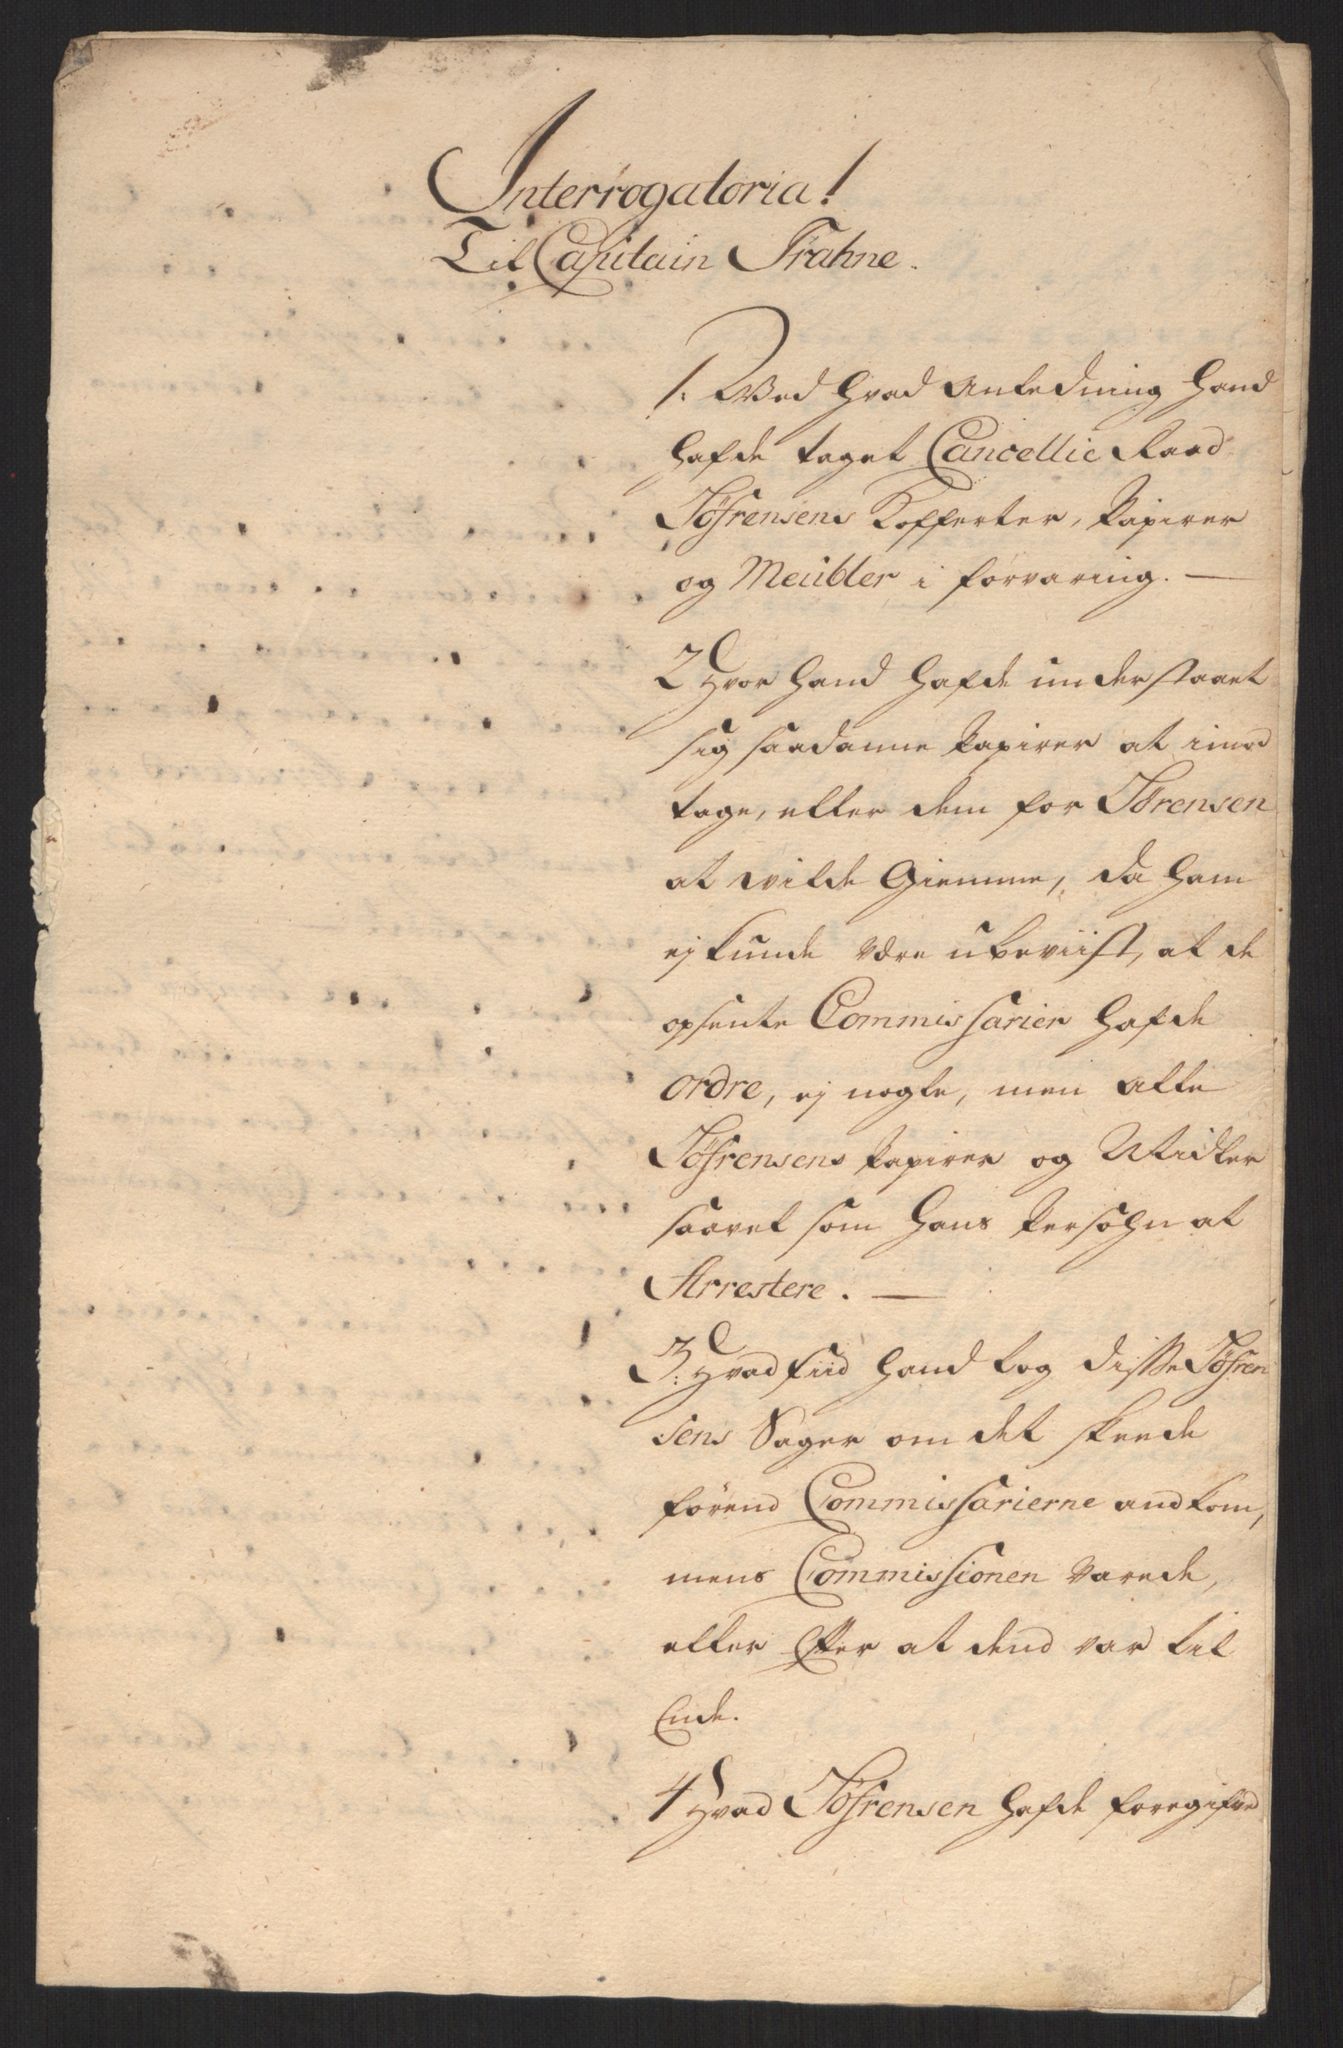 Interrogatoria!
Til Capitain Trahne.
1. Wed hvad Anledning hand
hafde taget Cancellie Raad
Jöhrensens Kofferter, Papirer
og Meübler i forvaring. —
2 Hvor hand hafde understaaet
sig saadanne Papirer at imod
tage, eller dem for Törensen
at wilde Giemme, da ham
ej kunde være ubeviist, at de
opsente Commissarier hafde
ordre, ej nogle, men alle
Jöhrensens Papirer og Midler
saavel som hans Persohn at
Arrestere. —
3: Hvad tiid hand tog disse Jöhren
sens Sager om det skeede
förend Commissarierne andkom,
mens Commissionen varede,
eller Efter at dend var til
Ende.
4 Hvad Jöhrensen hafde foregifved